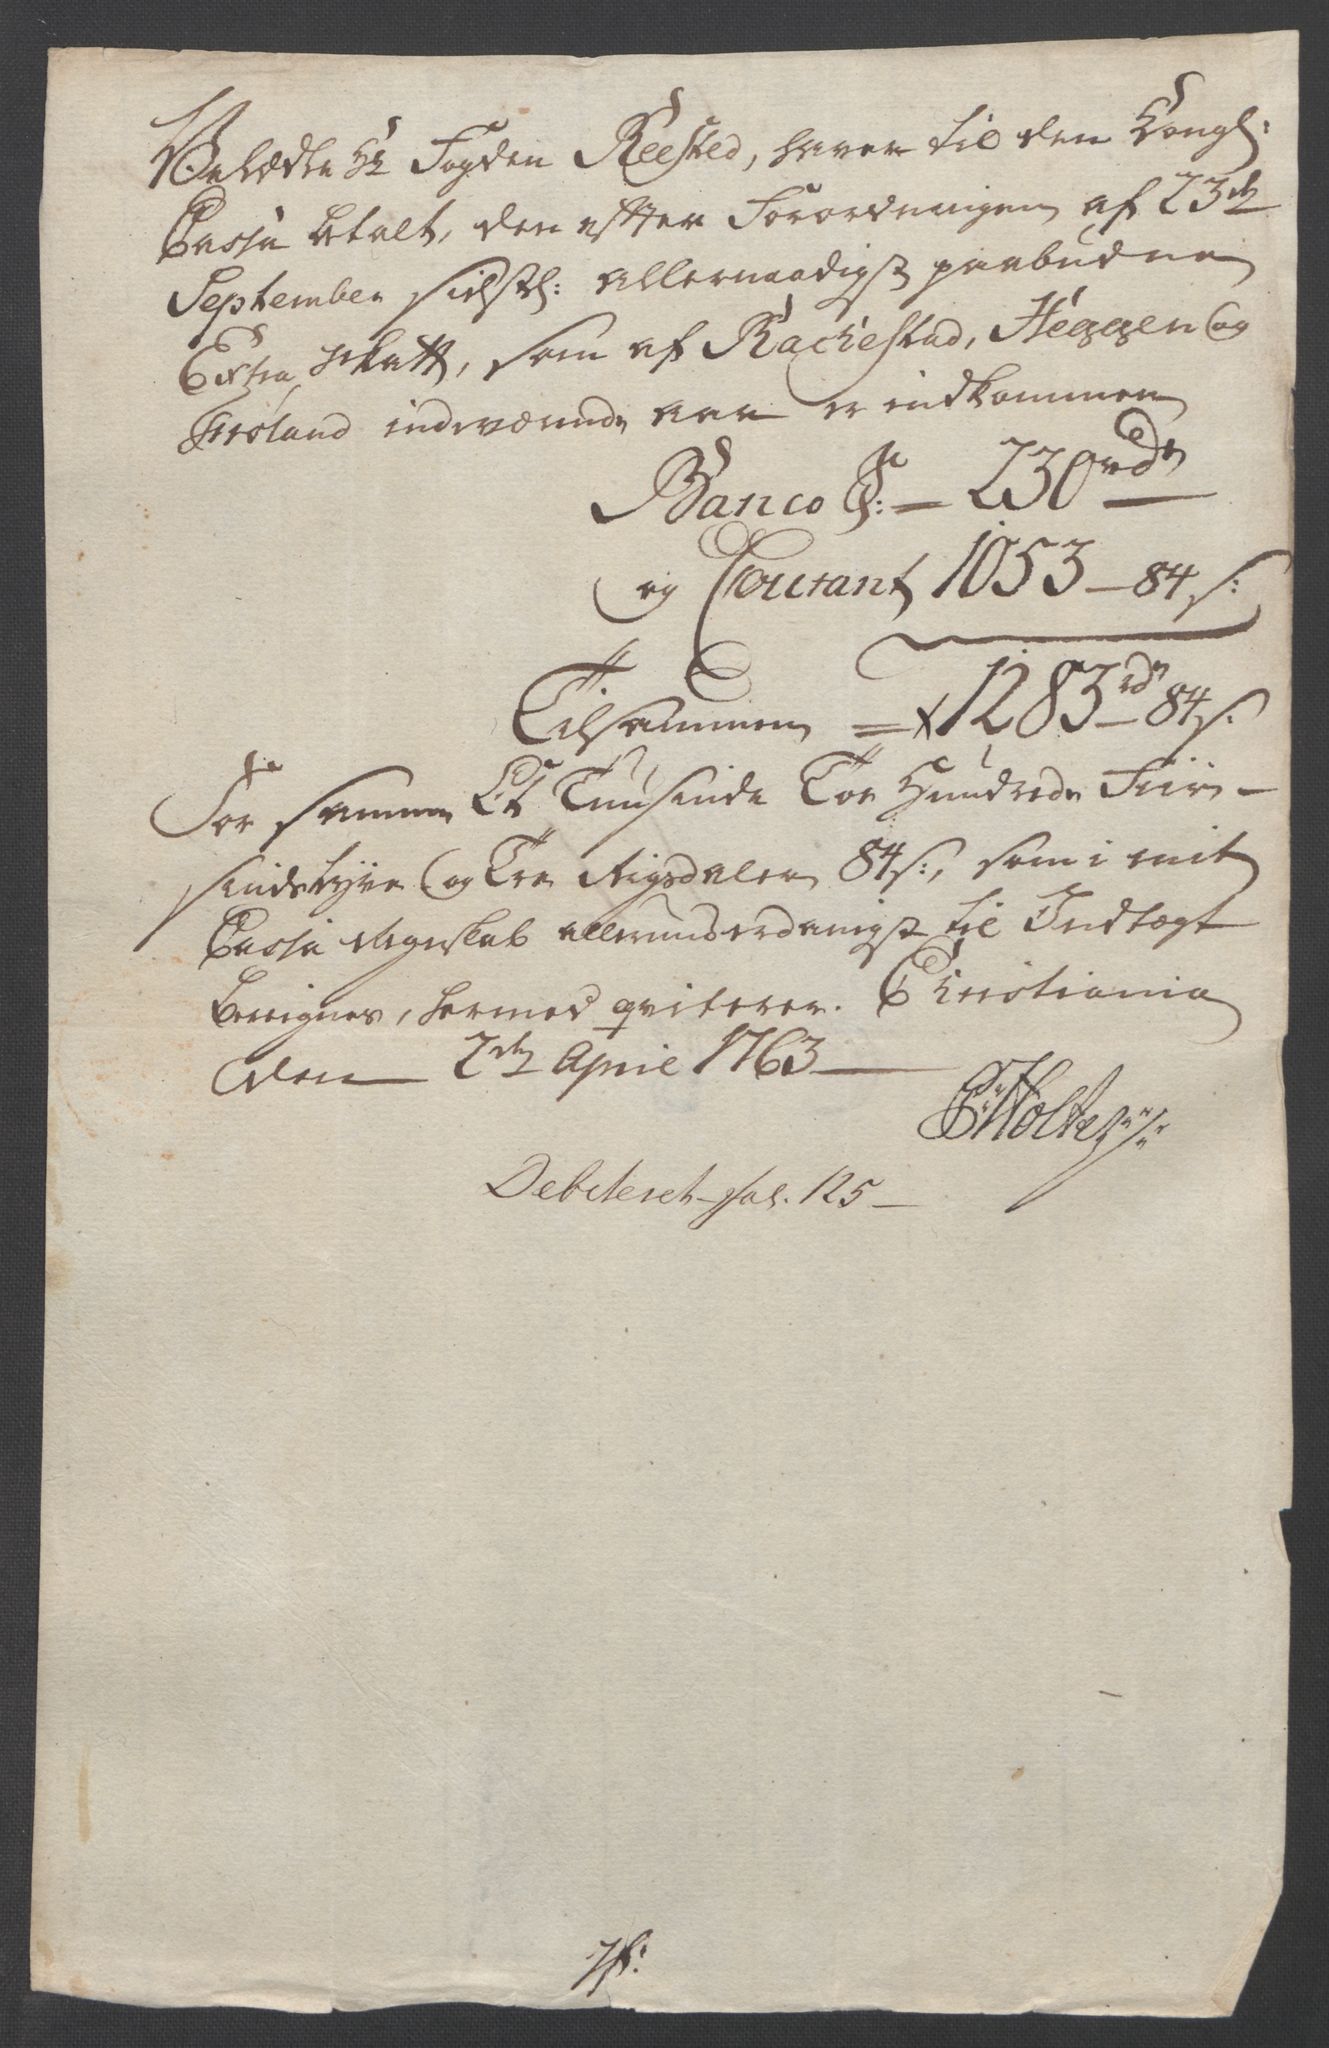 Velædle Hr Fogden Reested, haver til den Kongl:
Cassa betalt, den efter Forordningen af 23de
September sidstl: allernaadigst paabudne
Extra Skatt, som af Rackestad, Heggen og
Frøland indeværende aar er indkommen
Banco S: — 230 rdr
og Courant 1053 — 84 s:
Tilsammen = 1283 rdr 84 s:
For samme Et Tuusinde Toe Hundrede Fiir-
sindstyve og Tre Rigsdaler 84 s:, som i mit
Cassa Regnskab allerunderdanigst til Indtægt
beregnes, hermed qviterer. Christiania
den 2den April 1763
Holter
Debiteret fol. 125